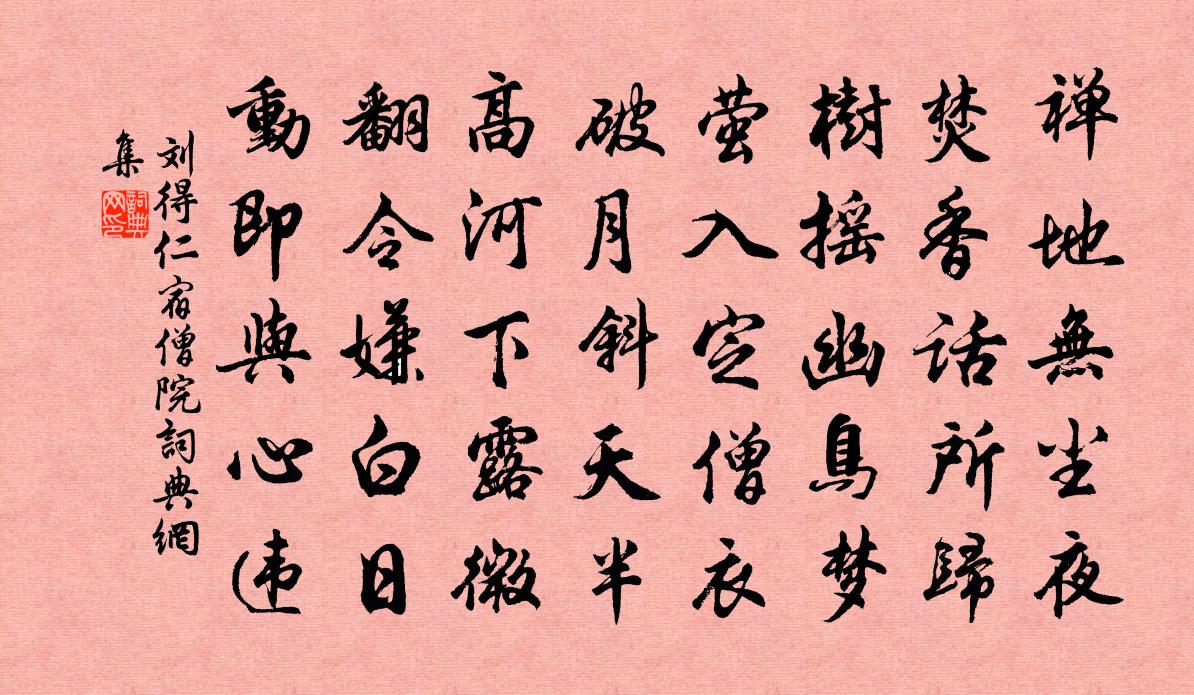 禅地無尘夜
焚香话所歸
樹摇幽鳥梦
萤入定僧衣
破月斜天半
高河下露微
翻令嫌白日
動即與心违
刘得仁宿僧院詞典網
集
詞典網印